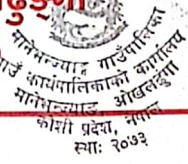 मानेभन्ज्याङ गाउँपालिका
गाउँ कार्यपालिकाको कार्यालय
मानेभन्ज्याङ, ओखलढुंगा
कोशी प्रदेश, नेपाल
स्थाः २०७३